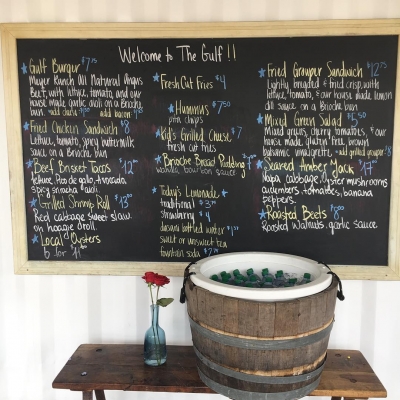 Welcome to The Gulf!!
Gulf Burger $7.75
Meyer Ranch All Natural Angus
Beef, with lettuce, tomato, and our
house made garlic aioli on a Brioche
bun. add cheese add bacon
Fried Chicken Sandwich $8
Lettuce, tomato, spicy buttermilk
sauce on a Brioche bun
Beef Brisket Tacos $12
lettuce, Pico de gallo, Avocado,
spicy sriracha aioli
Grilled Shrimp Roll $13
Red cabbage sweet slaw
on hoagie roll
Local Oysters
6 for $11
Fresh Cut Fries $4
Hummus $7.50
pita chips
Kid's Grilled Cheese $7
fresh cut fries
Brioche Bread Pudding
vanilla, bourbon sauce
Today's Lemonade
traditional $3
strawberry $4
dasani bottled water $1
sweet or unsweet tea
fountain soda $2
Fried Grouper Sandwich $12.75
Lightly breaded & fried crisp, with
lettuce, tomato, & our house made lemon
dill sauce on a Brioche bun
Mixed Green Salad $5.50
Mixed greens, cherry tomatoes, &
house made gluten free, brown
balsamic vinaigrette, add grilled grouper
Seared Amber Jack $17
Napa cabbage, oyster mushrooms
cucumbers, tomatoes, banana
peppers.
Roasted Beets $8.00
Roasted Walnuts, garlic sauce